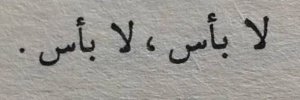 لا بأس ، لا بأس .